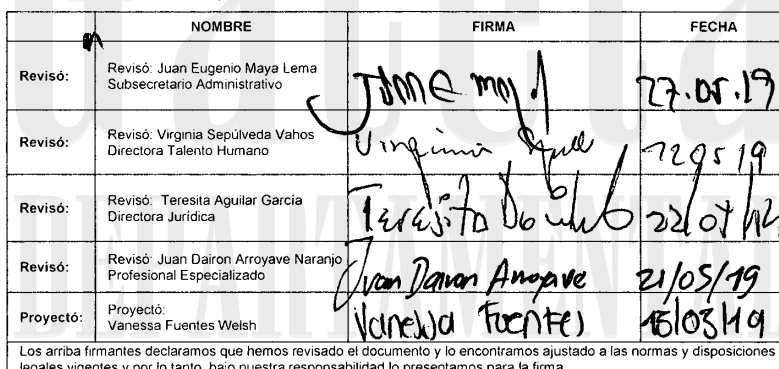 NOMBRE FIRMA FECHA
Revisó: Revisó: Juan Eugenio Maya Lema
Subsecretario Administrativo
27.05.19
Revisó: Revisó: Virginia Sepúlveda Vahos
Directora Talento Humano
Virginia
Revisó: Revisó: Teresita Aguilar García
Directora Jurídica
Teresita
Revisó: Revisó: Juan Dairon Arroyave Naranjo
Profesional Especializado
Juan Dairon Arroyave 21/05/19
Proyectó: Proyectó:
Vanessa Fuentes Welsh
Vanessa Fuentes 15/03/19
Los arriba firmantes declaramos que hemos revisado el documento y lo encontramos ajustado a las normas y disposiciones
legales vigentes y por lo tanto, bajo nuestra responsabilidad lo presentamos para la firma